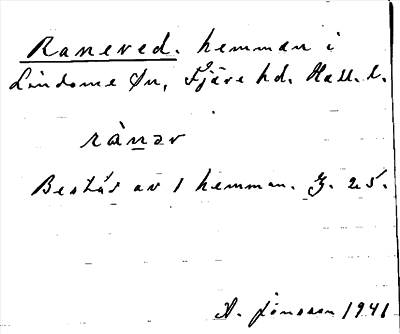 Raneved. hemman i
Lindome sn, Fjäre hd. Hall. l.
rànəv
Består av 1 hemman. J. 25.
A. Jönsson 1941